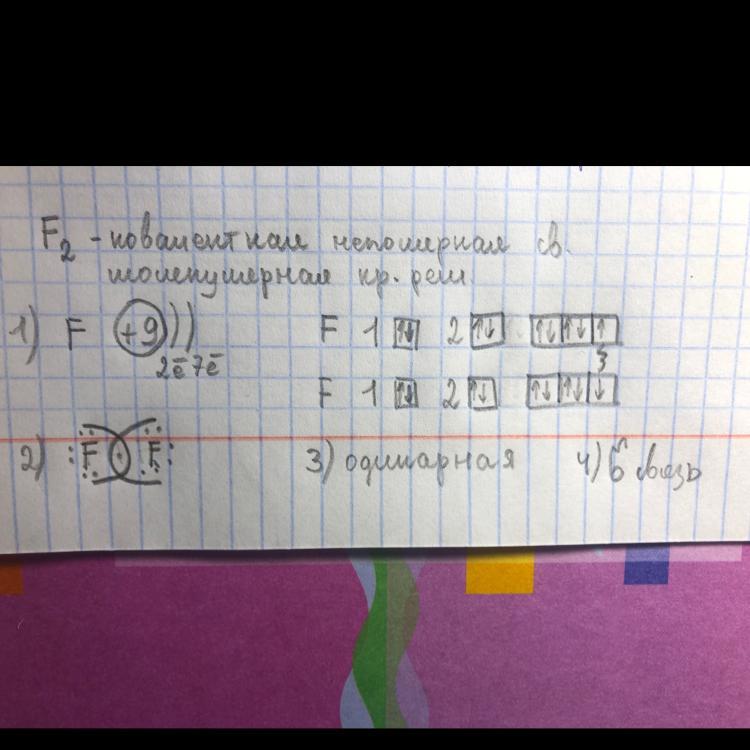 F₂ - ковалентная неполярная св.
молекулярная кр. реш.
1) F +9 ) ) )
2ē 7ē
F 1 ↑↓ 2 ↑↓ ↑↓ ↑↓ ↑
F 1 ↑↓ 2 ↑↓ ↑↓ ↑↓ ↓
2) :F : F:
3) одинарная
4) б связь